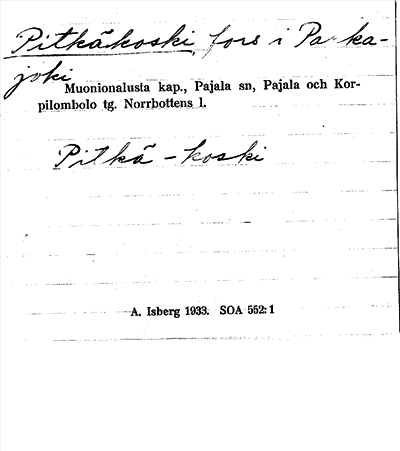 Pitkäkoski, fors i Parka-
joki
Muonionalusta kap., Pajala sn, Pajala och Kor-
pilombolo tg. Norrbottens l.
Pitkä-koski
A. Isberg 1933. SOA 552:1